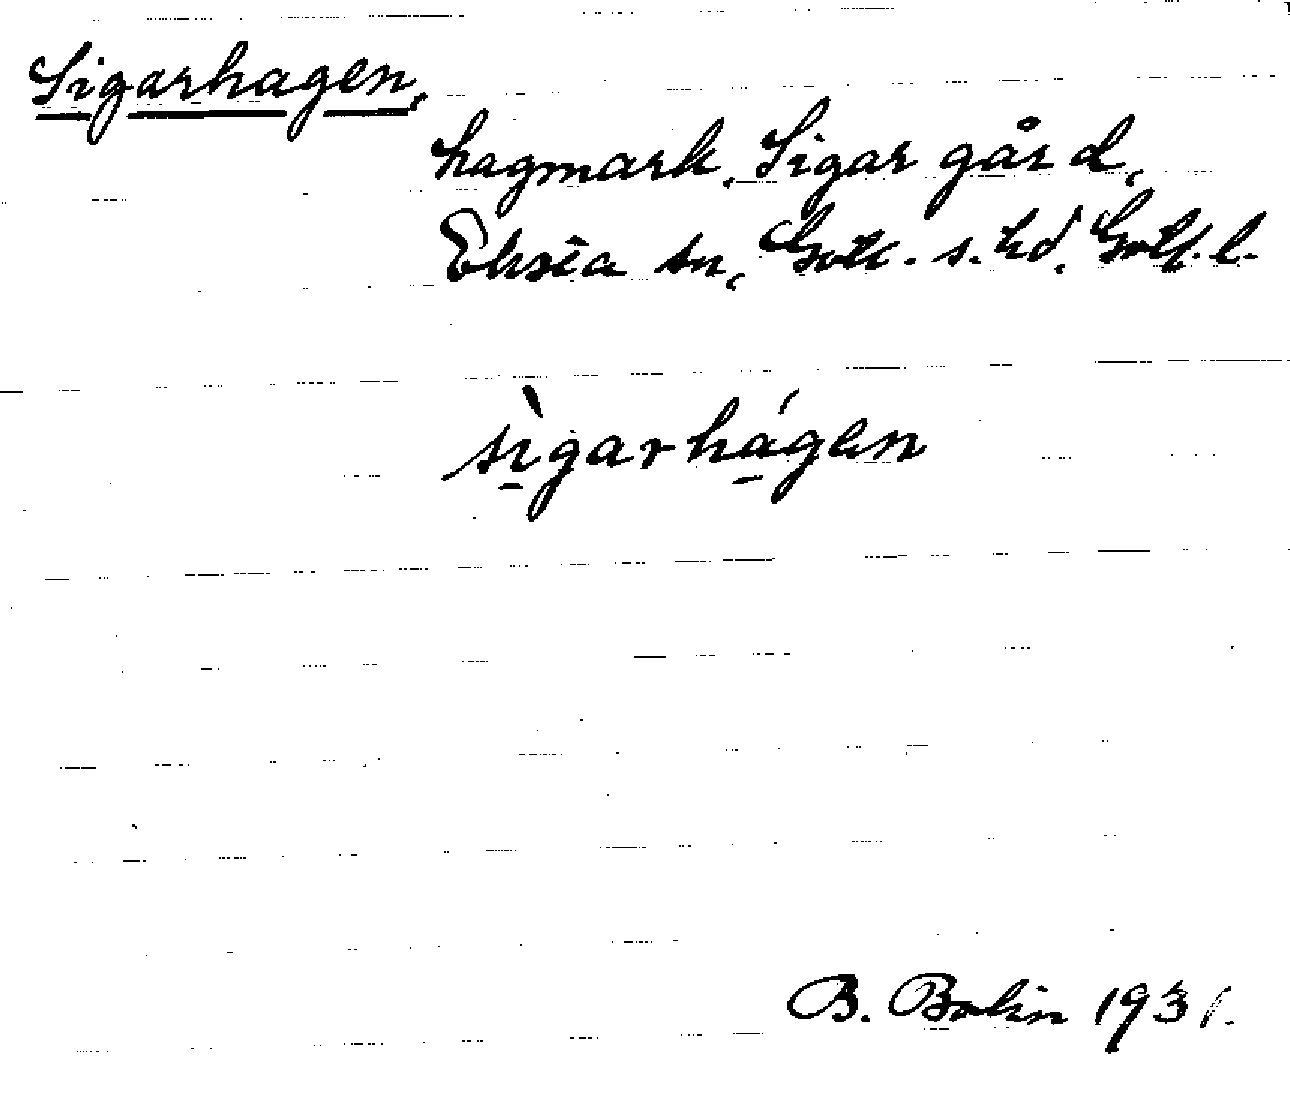 Sigarhagen,
hagmark, Sigar gård,
Eksta sn, Gotl. s. hd, Gotl. l.
sìgarhágen
B. Bolin 1931.